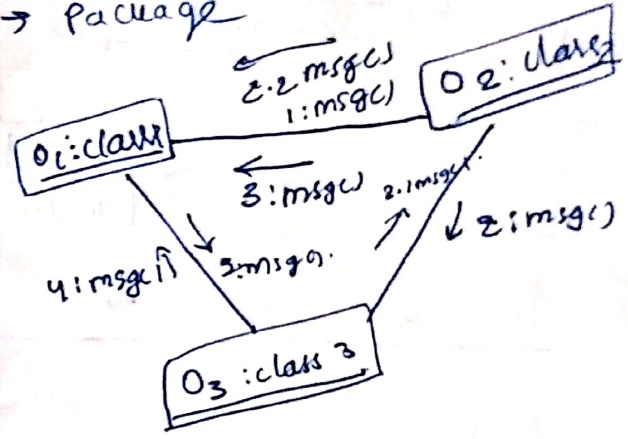 → Package
2.2 msg()
1:msg()
O1:class1
O2:class2
3:msg()
2.1msg().
2:msg()
4:msg()
5:msg().
O3:class 3